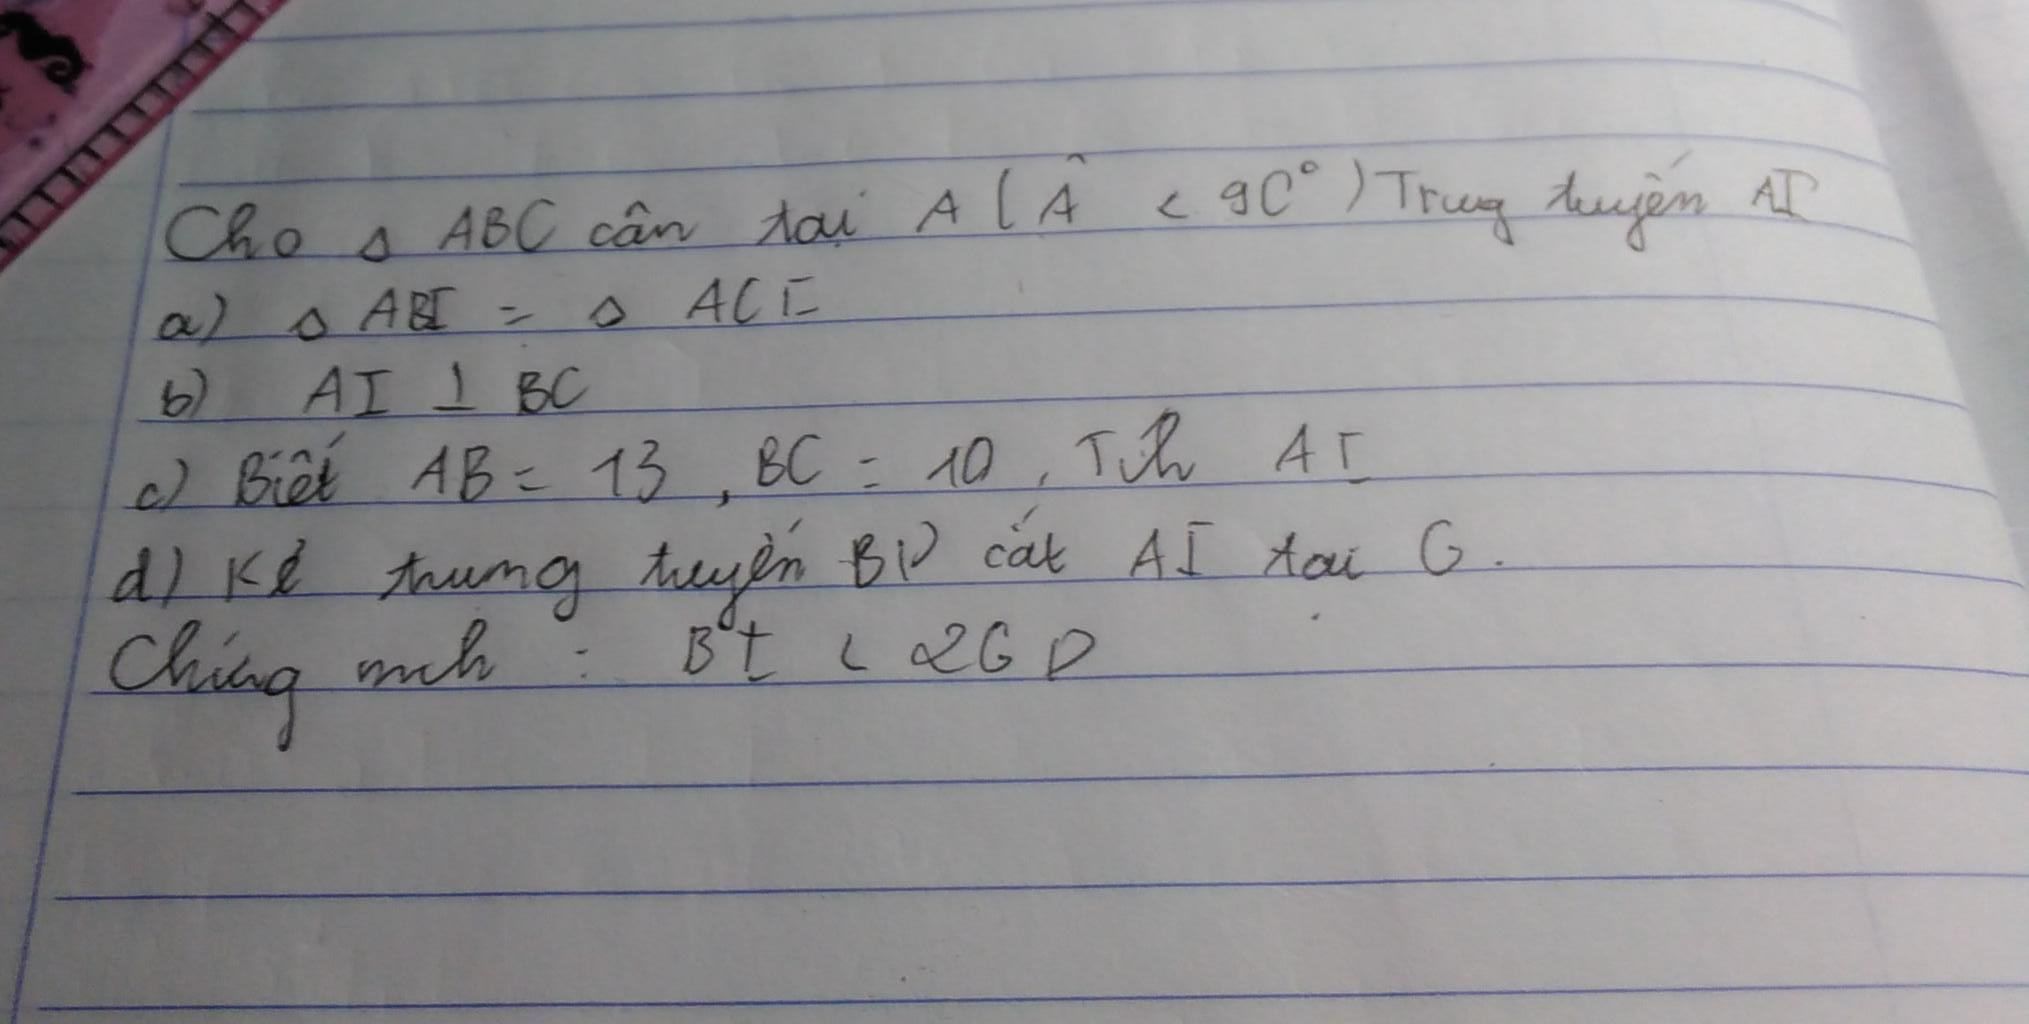 Cho Δ ABC cân tại A ( Â < 90° ) Trung tuyến AI
a) Δ ABI = Δ ACI
b) AI ⊥ BC
c) Biết AB = 13, BC = 10, Tính AI
d) Kẻ trung tuyến BD cắt AI tại G.
Chứng minh : BI < 2GD